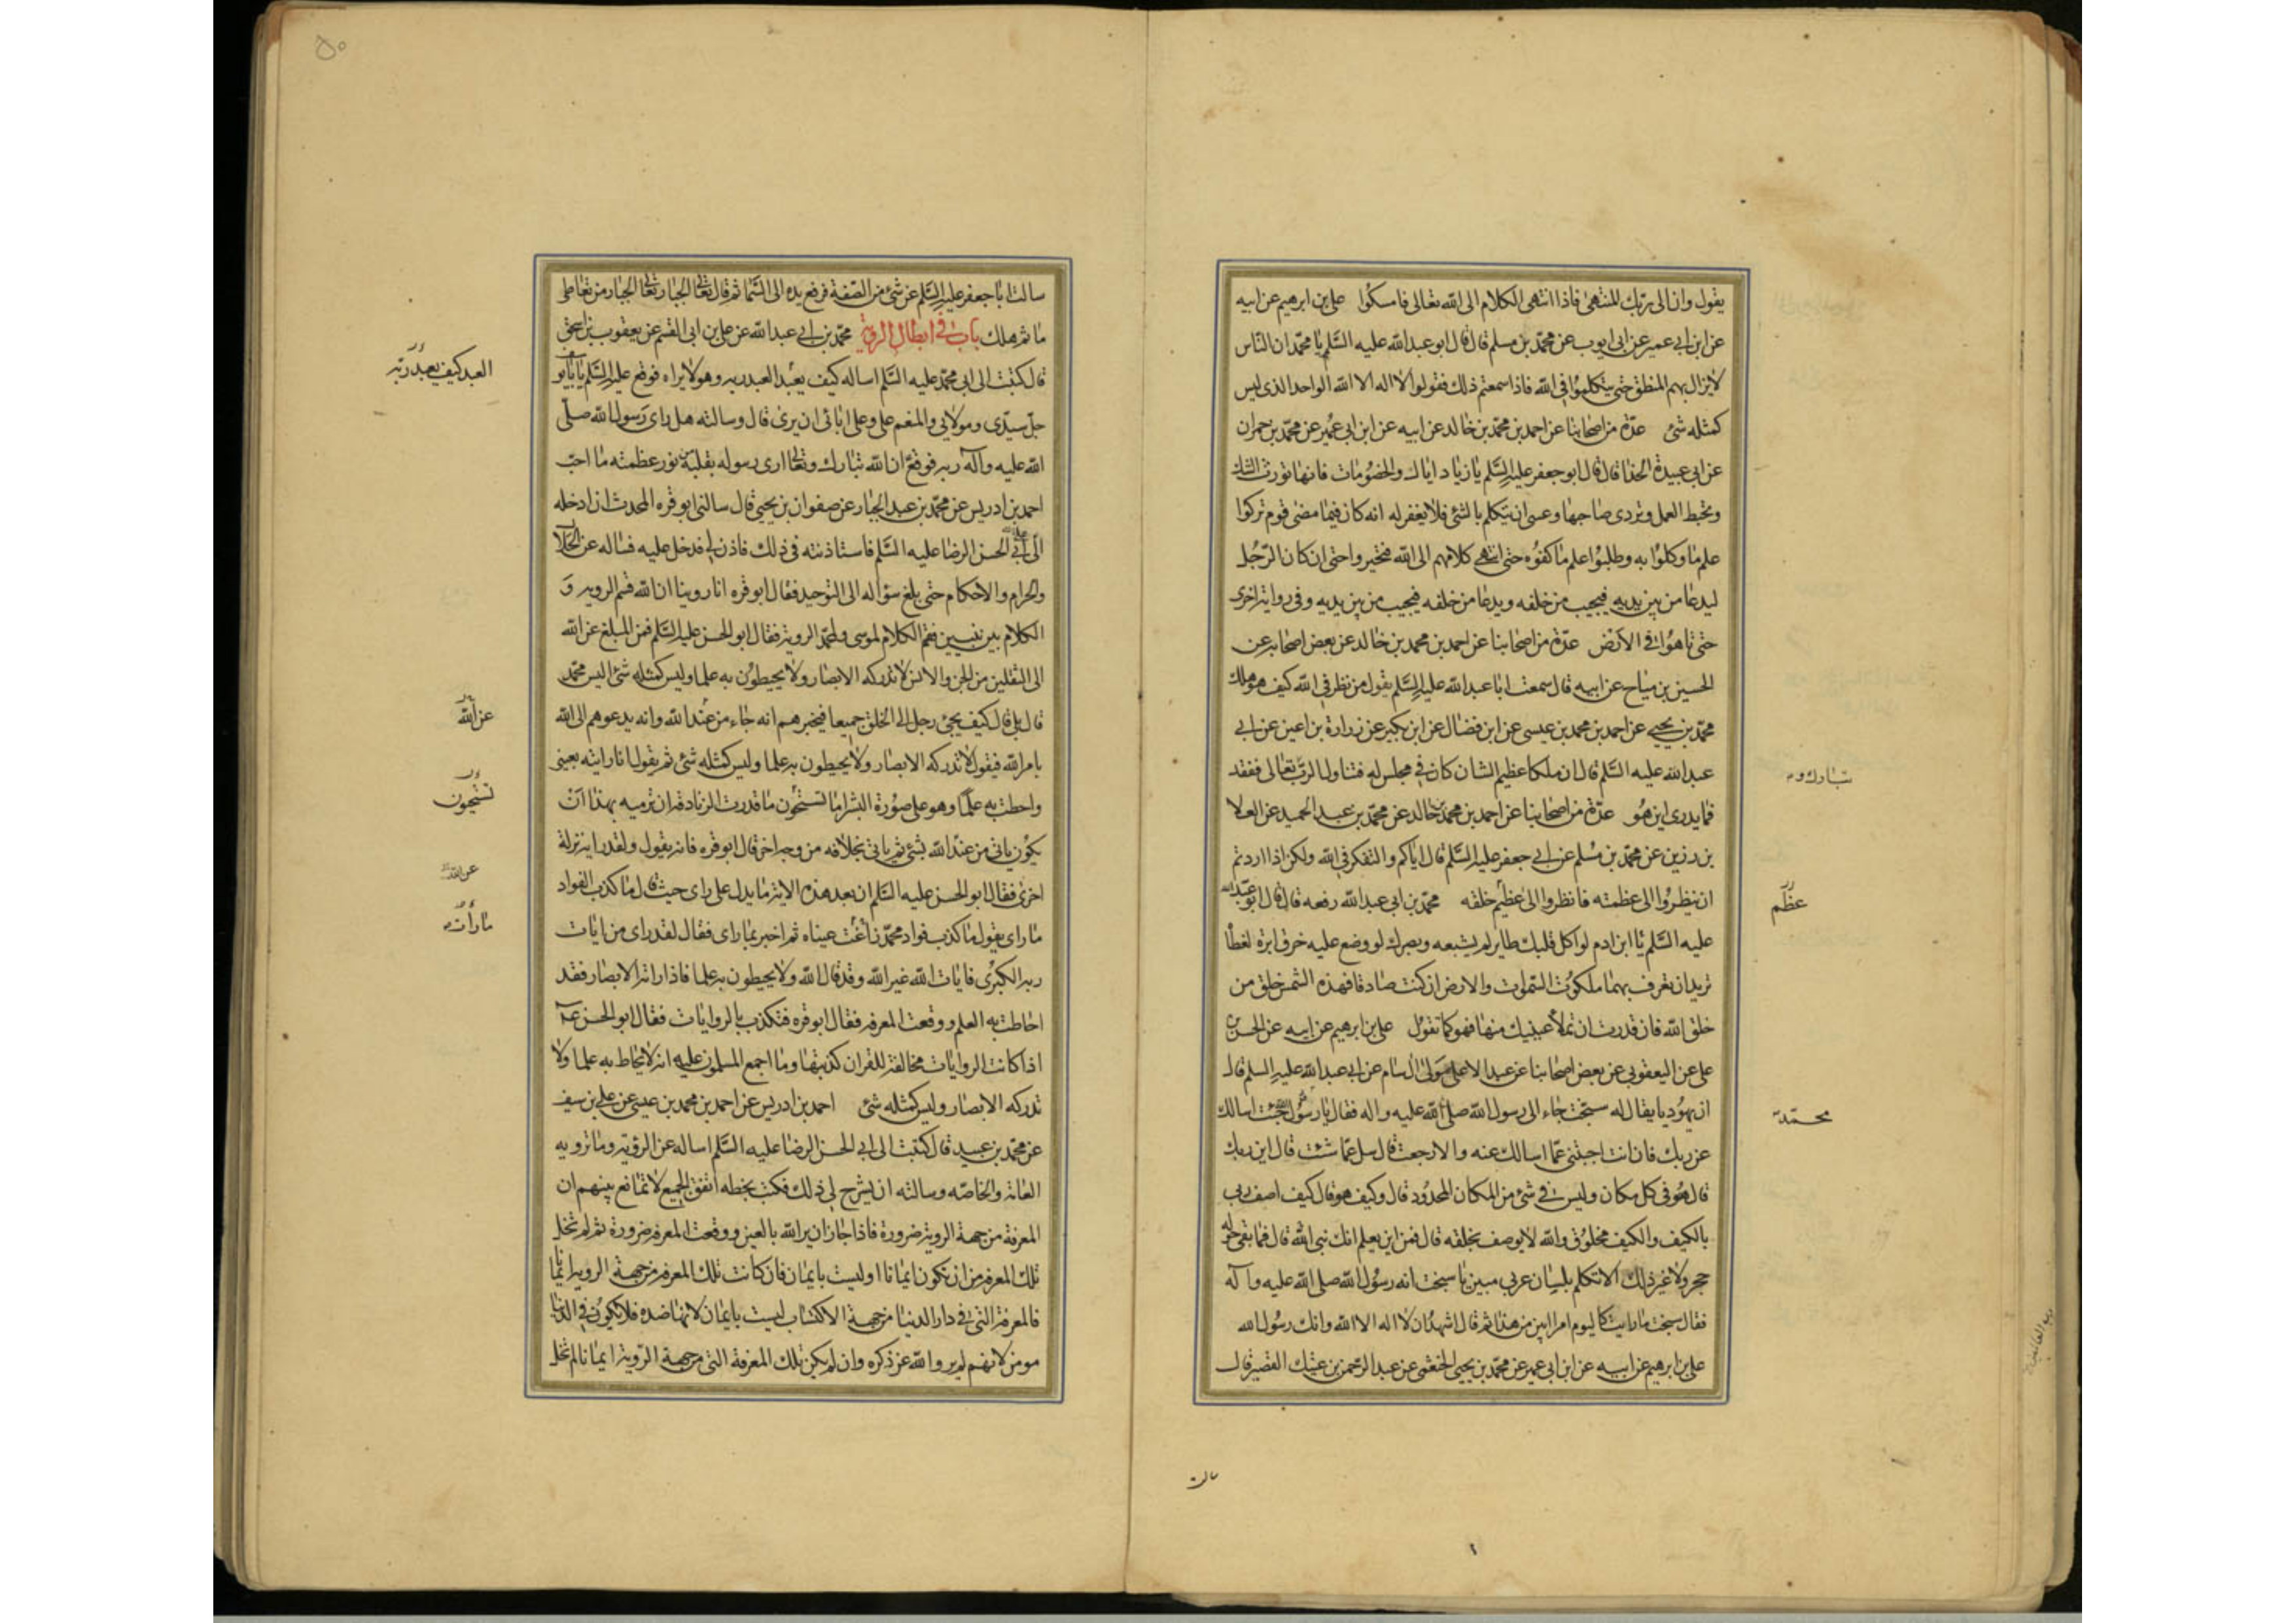 يقول وان الى ربك المنتهى فاذا انتهى الكلام الى الله تعالى فامسكوا علي بن ابرهيم عن ابيه
عن ابن ابي عمير عن ابى ايوب عن محمد بن مسلم قال قال ابو عبدالله عليه السلم يا محمد ان الناس
لا يزال بهم المنطق حتى يتكلموا فى الله فاذا سمعتم ذلك فقولوا لا اله الا الله الواحد الذى ليس
كمثله شئ عدة من اصحابنا عن احمد بن محمد بن خالد عن ابيه عن ابن ابى عمير عن محمد بن حمران
عن ابي عبيدة الحذا قال قال ابو جعفر عليه السلم يا زياد اياك والخصومات فانها تورث الشك
وتحبط العمل وتردى صاحبها وعسى ان يتكلم بالشئ فلا يغفر له انه كان فيما مضى قوم تركوا
علم ما وكلوا به وطلبوا علم ما كفوه حتى انتهى كلامهم الى الله فتحيروا حتى ان كان الرجل
ليدعا من بين يديه فيجيب من خلفه ويدعا من خلفه فيجيب من بين يديه وفى رواية اخرى
حتى تاهوا فى الارض عدة من اصحابنا عن احمد بن محمد بن خالد عن بعض اصحابه عن
الحسين بن مياح عن ابيه قال سمعت ابا عبدالله عليه السلم يقول من نظر فى الله كيف هو هلك
محمد بن يحيى عن احمد بن محمد بن عيسى عن ابن فضال عن ابن بكير عن زرارة بن اعين عن ابي
عبدالله عليه السلم قال ان ملكا عظيم الشان كان فى مجلس له فتناول الرب تعالى ففقد
تبارك و
فما يدرى اين هو عدة من اصحابنا عن احمد بن محمد بن خالد عن محمد بن عبد الحميد عن العلا
بن رزين عن محمد بن مسلم عن ابي جعفر عليه السلم قال اياكم والتفكر فى الله ولكن اذا اردتم
ان تنظروا الى عظمته فانظروا الى عظيم خلقه محمد بن ابى عبدالله رفعه قال قال ابو عبدالله
عظم
عليه السلم يا ابن ادم لو اكل قلبك طاير لم يشبعه وبصرك لو وضع عليه خرق ابرة لغطا
تريد ان تعرف بهما ملكوت السموات والارض ان كنت صادقا فهذه الشمس خلق من
خلق الله فان قدرت ان تملأ عينيك منها فهو كما تقول علي بن ابرهيم عن ابيه عن الحسن بن
علي عن اليعقوبي عن بعض اصحابنا عن عبد الاعلى مولى ال سام عن ابي عبدالله عليه السلم قال
ان يهوديا يقال له سبخت جاء الى رسول الله صلى الله عليه واله فقال يا رسول الله جئت اسالك
محمد
عن ربك فان انت اجبتنى عما اسالك عنه والا رجعت قال سل عما شئت قال اين ربك
قال هو فى كل مكان وليس فى شئ من المكان المحدود قال وكيف هو قال كيف اصف ربي
بالكيف والكيف مخلوق والله لا يوصف بخلقه قال فمن اين يعلم انك نبى الله قال فما بقى حوله
حجر ولا غير ذلك الا تكلم بلسان عربى مبين يا سبخت انه رسول الله صلى الله عليه وآله
فقال سبخت ما رايت كاليوم امرا ابين من هذا ثم قال اشهد ان لا اله الا الله وانك رسول الله
علي بن ابرهيم عن ابيه عن ابن ابى عمير عن محمد بن يحيى الخثعمى عن عبد الرحمن بن عتيك القصير قال
سالت
٥٠
سالت ابا جعفر عليه السلم عن شئ من الصفة فرفع يده الى السما ثم قال تعالى الجبار تعالى الجبار من تعاطى
ما ثم هلك باب فى ابطال الروية محمد بن ابي عبدالله عن علي بن ابى القسم عن يعقوب بن اسحق
قال كتبت الى ابى محمد عليه السلم اساله كيف يعبد العبد ربه وهو لا يراه فوقع عليه السلم يا بايو
العبد كيف يعبد ربه
جل سيدى ومولاى والمنعم على وعلى ابائى ان يرى قال وسالته هل راى رسول الله صلى
الله عليه وآله ربه فوقع ان الله تبارك وتعالى ارى رسوله بقلبه من نور عظمته ما احب
احمد بن ادريس عن محمد بن عبد الجبار عن صفوان بن يحيى قال سالنى ابو قره المحدث ان ادخله
الى ابى الحسن الرضا عليه السلم فاستاذنته فى ذلك فاذن لى فدخل عليه فساله عن الحلال
والحرام والاحكام حتى بلغ سؤاله الى التوحيد فقال ابو قره انا روينا ان الله قسم الرويه و
الكلام بين نبيين فقسم الكلام لموسى ولمحمد الروية فقال ابو الحسن عليه السلم فمن المبلغ عن الله
الى الثقلين من الجن والانس لا تدركه الابصار ولا يحيطون به علما وليس كمثله شئ اليس محمد
قال بلى قال كيف يجئ رجل الى الخلق جميعا فيخبرهم انه جاء من عند الله وانه يدعوهم الى الله
عن الله
بامر الله فيقول لا تدركه الابصار ولا يحيطون به علما وليس كمثله شئ ثم يقول انا رايته بعينى
واحطت به علما وهو على صورة البشر اما تستحون ما قدرت الزنادقة ان ترميه بهذا ان
تستحيون
يكون ياتى من عند الله بشئ ثم ياتى بخلافه من وجه اخر قال ابو قره فانه يقول ولقد راه نزلة
عن الله
اخرى فقال ابو الحسن عليه السلم ان بعد هذه الاية ما يدل على راى حيث قال ما كذب الفواد
ما راى يقول ما كذب فواد محمد ما رأت عيناه ثم اخبر بما راى فقال لقد راى من ايات
ما رأت
ربه الكبرى فايات الله غير الله وقد قال الله ولا يحيطون به علما فاذا راته الابصار فقد
احاطت به العلم ووقعت المعرفه فقال ابو قره فتكذب بالروايات فقال ابو الحسن ع
اذا كانت الروايات مخالفة للقران كذبتها وما اجمع المسلمون عليه انه لا يحاط به علما ولا
تدركه الابصار وليس كمثله شئ احمد بن ادريس عن احمد بن محمد بن عيسى عن علي بن سيف
عن محمد بن عبيد قال كتبت الى ابي الحسن الرضا عليه السلم اساله عن الرؤية وما ترويه
العامة والخاصه وسالته ان يشرح لى ذلك فكتب بخطه اتفق الجميع لا تمانع بينهم ان
المعرفة من جهة الروية ضرورة فاذا جاز ان يرى الله بالعين ووقعت المعرفه ضرورة ثم لم تخل
تلك المعرفه من ان تكون ايمانا او ليست بايمان فان كانت تلك المعرفه من جهة الرويه ايمانا
فالمعرفة التى فى دار الدنيا من جهة الاكتساب ليست بايمان لانها ضده فلا يكون فى الدنيا
مومن لانهم لم يروا الله عز ذكره وان لم يكن تلك المعرفة التى من جهة الروية ايمانا لم تخل